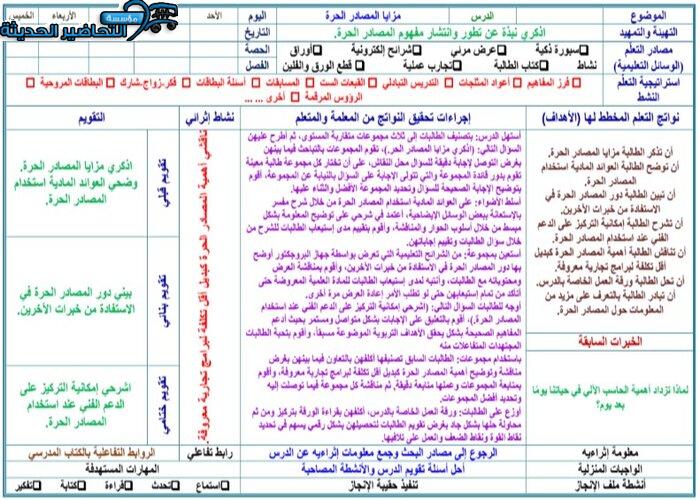 الموضوع
الدرس
مزايا المصادر الحرة
اليوم
الأحد
الأربعاء
الخميس
مؤسسة التحاضير الحديثة
التهيئة والتمهيد
اذكري نبذة عن تطور وانتشار مفهوم المصادر الحرة.
التاريخ
مصادر التعلم
(الوسائل التعليمية)
سبورة ذكية
عرض مرئي
شرائح إلكترونية
أوراق
الحصة
نشاط
كتاب الطالبة
تجارب عملية
قطع الورق والفلين
الفصل
استراتيجية التعلم
النشط
فرز المفاهيم
أعواد المثلجات
التدريس التبادلي
القبعات الست
المسابقات
أسئلة البطاقات
فكر-زواج-شارك
البطاقات المروحية
الرؤوس المرقمة
أخرى ... ...
نواتج التعلم المخطط لها (الأهداف)
إجراءات تحقيق النواتج من المعلمة والمتعلم
نشاط إثرائي
التقويم
أن تذكر الطالبة مزايا المصادر الحرة.
أن توضح الطالبة العوائد المادية استخدام
المصادر الحرة.
أن تبين الطالبة دور المصادر الحرة في
الاستفادة من خبرات الآخرين.
أن تشرح الطالبة إمكانية التركيز على الدعم
الفني عند استخدام المصادر الحرة.
أن تناقش الطالبة أهمية المصادر الحرة كبديل
أقل تكلفة لبرامج تجارية معروفة.
أن تحل الطالبة ورقة العمل الخاصة بالدرس.
أن تبادر الطالبة بالتعرف على مزيد من
المعلومات حول المصادر الحرة.
الخبرات السابقة
لماذا تزداد أهمية الحاسب الآلي في حياتنا يومًا
بعد يوم؟
أستهل الدرس: بتصنيف الطالبات إلى ثلاث مجموعات متقاربة المستوى، ثم أطرح عليهن
السؤال التالي: (اذكري مزايا المصادر الحر.)، تقوم المجموعات بالتباحث فيما بينهن
بغرض التوصل لإجابة دقيقة للسؤال محل النقاش، على أن تختار كل مجموعة طالبة معينة
تقوم بدور قائدة المجموعة والتي تتولى الإجابة على السؤال بالنيابة عن المجموعة، أقوم
بتوضيح الإجابة الصحيحة للسؤال وتحديد المجموعة الأفضل والثناء عليها.
أسلط الأضواء: على العوائد المادية استخدام المصادر الحرة من خلال شرح مفسر
بالاستعانة ببعض الوسائل الايضاحية، أعتمد في شرحي على توضيح المعلومة بشكل
مبسط من خلال أسلوب الحوار والمناقشة، وأقوم بتقييم مدى إستيعاب الطالبات للشرح من
خلال سؤال الطالبات وتقييم إجاباتهن.
أستعين بمجموعة: من الشرائح التعليمية التي تعرض بواسطة جهاز البروجكتور أوضح
بها دور المصادر الحرة في الاستفادة من خبرات الآخرين، وأقوم بمناقشة العرض
ومحتوياته مع الطالبات، وأنتبه لمدى إستيعاب الطالبات للمادة العلمية المعروضة حتى
أتأكد من تمام إستيعابهن حتى لو تطلب الأمر إعادة العرض مرة أخرى.
أوجه للطالبات السؤال التالي: (اشرحي إمكانية التركيز على الدعم الفني عند استخدام
المصادر الحرة.)، أقوم بالتعليق على الإجابات بشكل متواصل ومستمر بحيث أدعم
المفاهيم الصحيحة بشكل يحقق الأهداف التربوية الموضوعة مسبقاً، وأقوم بتحية الطالبات
المجتهدات المتفاعلات منه
باستخدام مجموعات: الطالبات السابق تصنيفها أكلفهن بالتعاون فيما بينهن بغرض
مناقشة وتوضيح أهمية المصادر الحرة كبديل أقل تكلفة لبرامج تجارية معروفة، وأقوم
بمتابعة المجموعات وعملها متابعة دقيقة، ثم مناقشة كل مجموعة فيما توصلت إليه
وتحديد أفضل المجموعات.
أوزع على الطالبات: ورقة العمل الخاصة بالدرس، أكلفهن بقراءة الورقة بتركيز ومن ثم
محاولة حلها بشكل جاد بغرض تقويم الطالبات لتحصيلهن بشكل رقمي يسهم في تحديد
نقاط القوة ونقاط الضعف والعمل على تلافيها.
ناقشي أهمية المصادر الحرة كبديل أقل تكلفة لبرامج تجارية معروفة.
تقويم قبلي
اذكري مزايا المصادر الحرة.
وضحي العوائد المادية استخدام
المصادر الحرة.
تقويم بنائي
بيني دور المصادر الحرة في
الاستفادة من خبرات الآخرين.
تقويم ختامي
اشرحي إمكانية التركيز على
الدعم الفني عند استخدام
المصادر الحرة.
معلومة إثرائيه
الرجوع إلى مصادر البحث وجمع معلومات إثراءيه عن الدرس
رابط تفاعلي
الروابط التفاعلية بالكتاب المدرسي
الواجبات المنزلية
أحل أسئلة تقويم الدرس والأنشطة المصاحبة
المهارات المستهدفة
أنشطة ملف الإنجاز
تنفيذ حقيبة الإنجاز
استماع
تحدث
قراءة
كتابة
تفكير